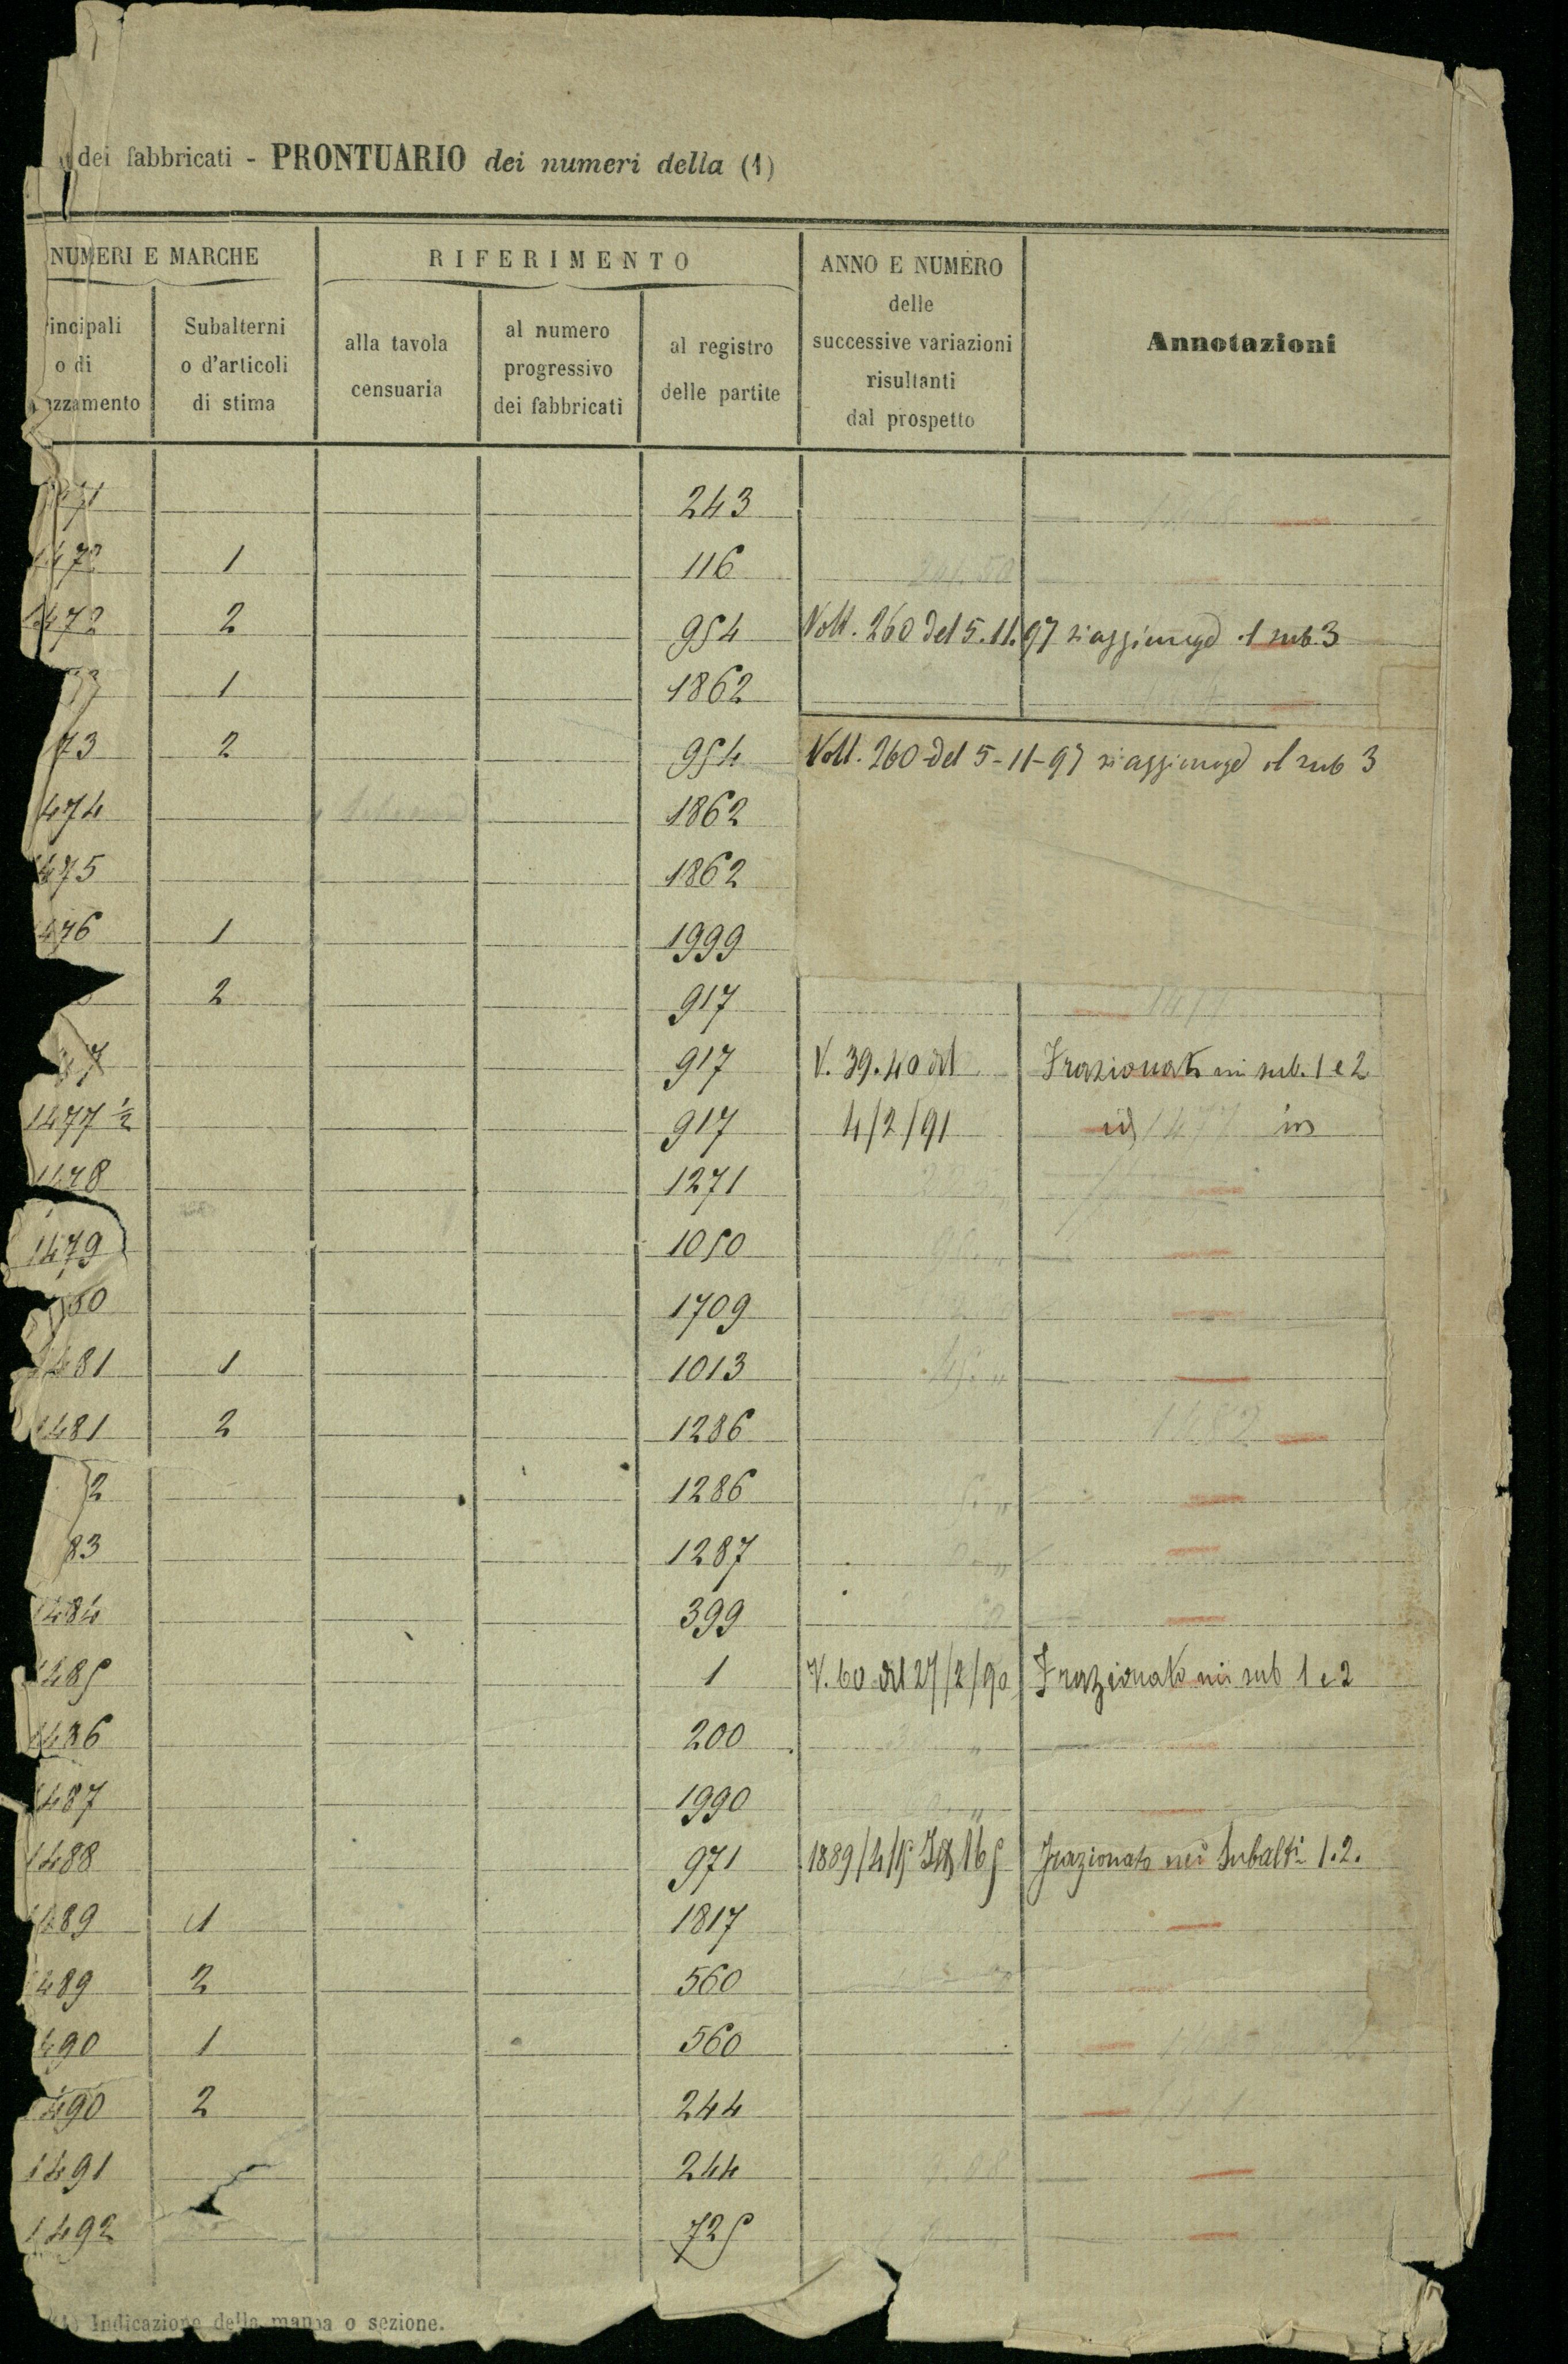 dei fabbricati - PRONTUARIO dei numeri della (1)
NUMERI E MARCHE
RIFERIMENTO
ANNO E NUMERO
delle
successive variazioni
risultanti
dal prospetto
Annotazioni
incipali
o di
zzamento
Subalterni
o d'articoli
di stima
alla tavola
censuaria
al numero
progressivo
dei fabbricati
al registro
delle partite
71 243
1472 1 116
1472 2 954 Volt. 260 del 5.11.97 si aggiunge il sub 3
73 1 1862
73 2 954 Volt. 260 del 5-11-97 si aggiunge il sub 3
474 1862
475 1862
476 1 1999
2 917
7 917 V. 39.40 del Frazionato nei sub. 1 e 2
1477 1/2 917 4/2/91 id
1478 1271
1479 1050
80 1709
1481 1 1013
1481 2 1286 1482
2 1286
83 1287
1484 399
1485 1 V. 60 del 27/2/90 Frazionato nei sub 1 e 2
1486 200
1487 1990
1488 971 1889/4/5 165 Frazionato nei Subalti 1.2.
1489 1 1817
489 2 560
490 1 560
490 2 244
1491 244
1492 725
(1) Indicazione della mappa o sezione.